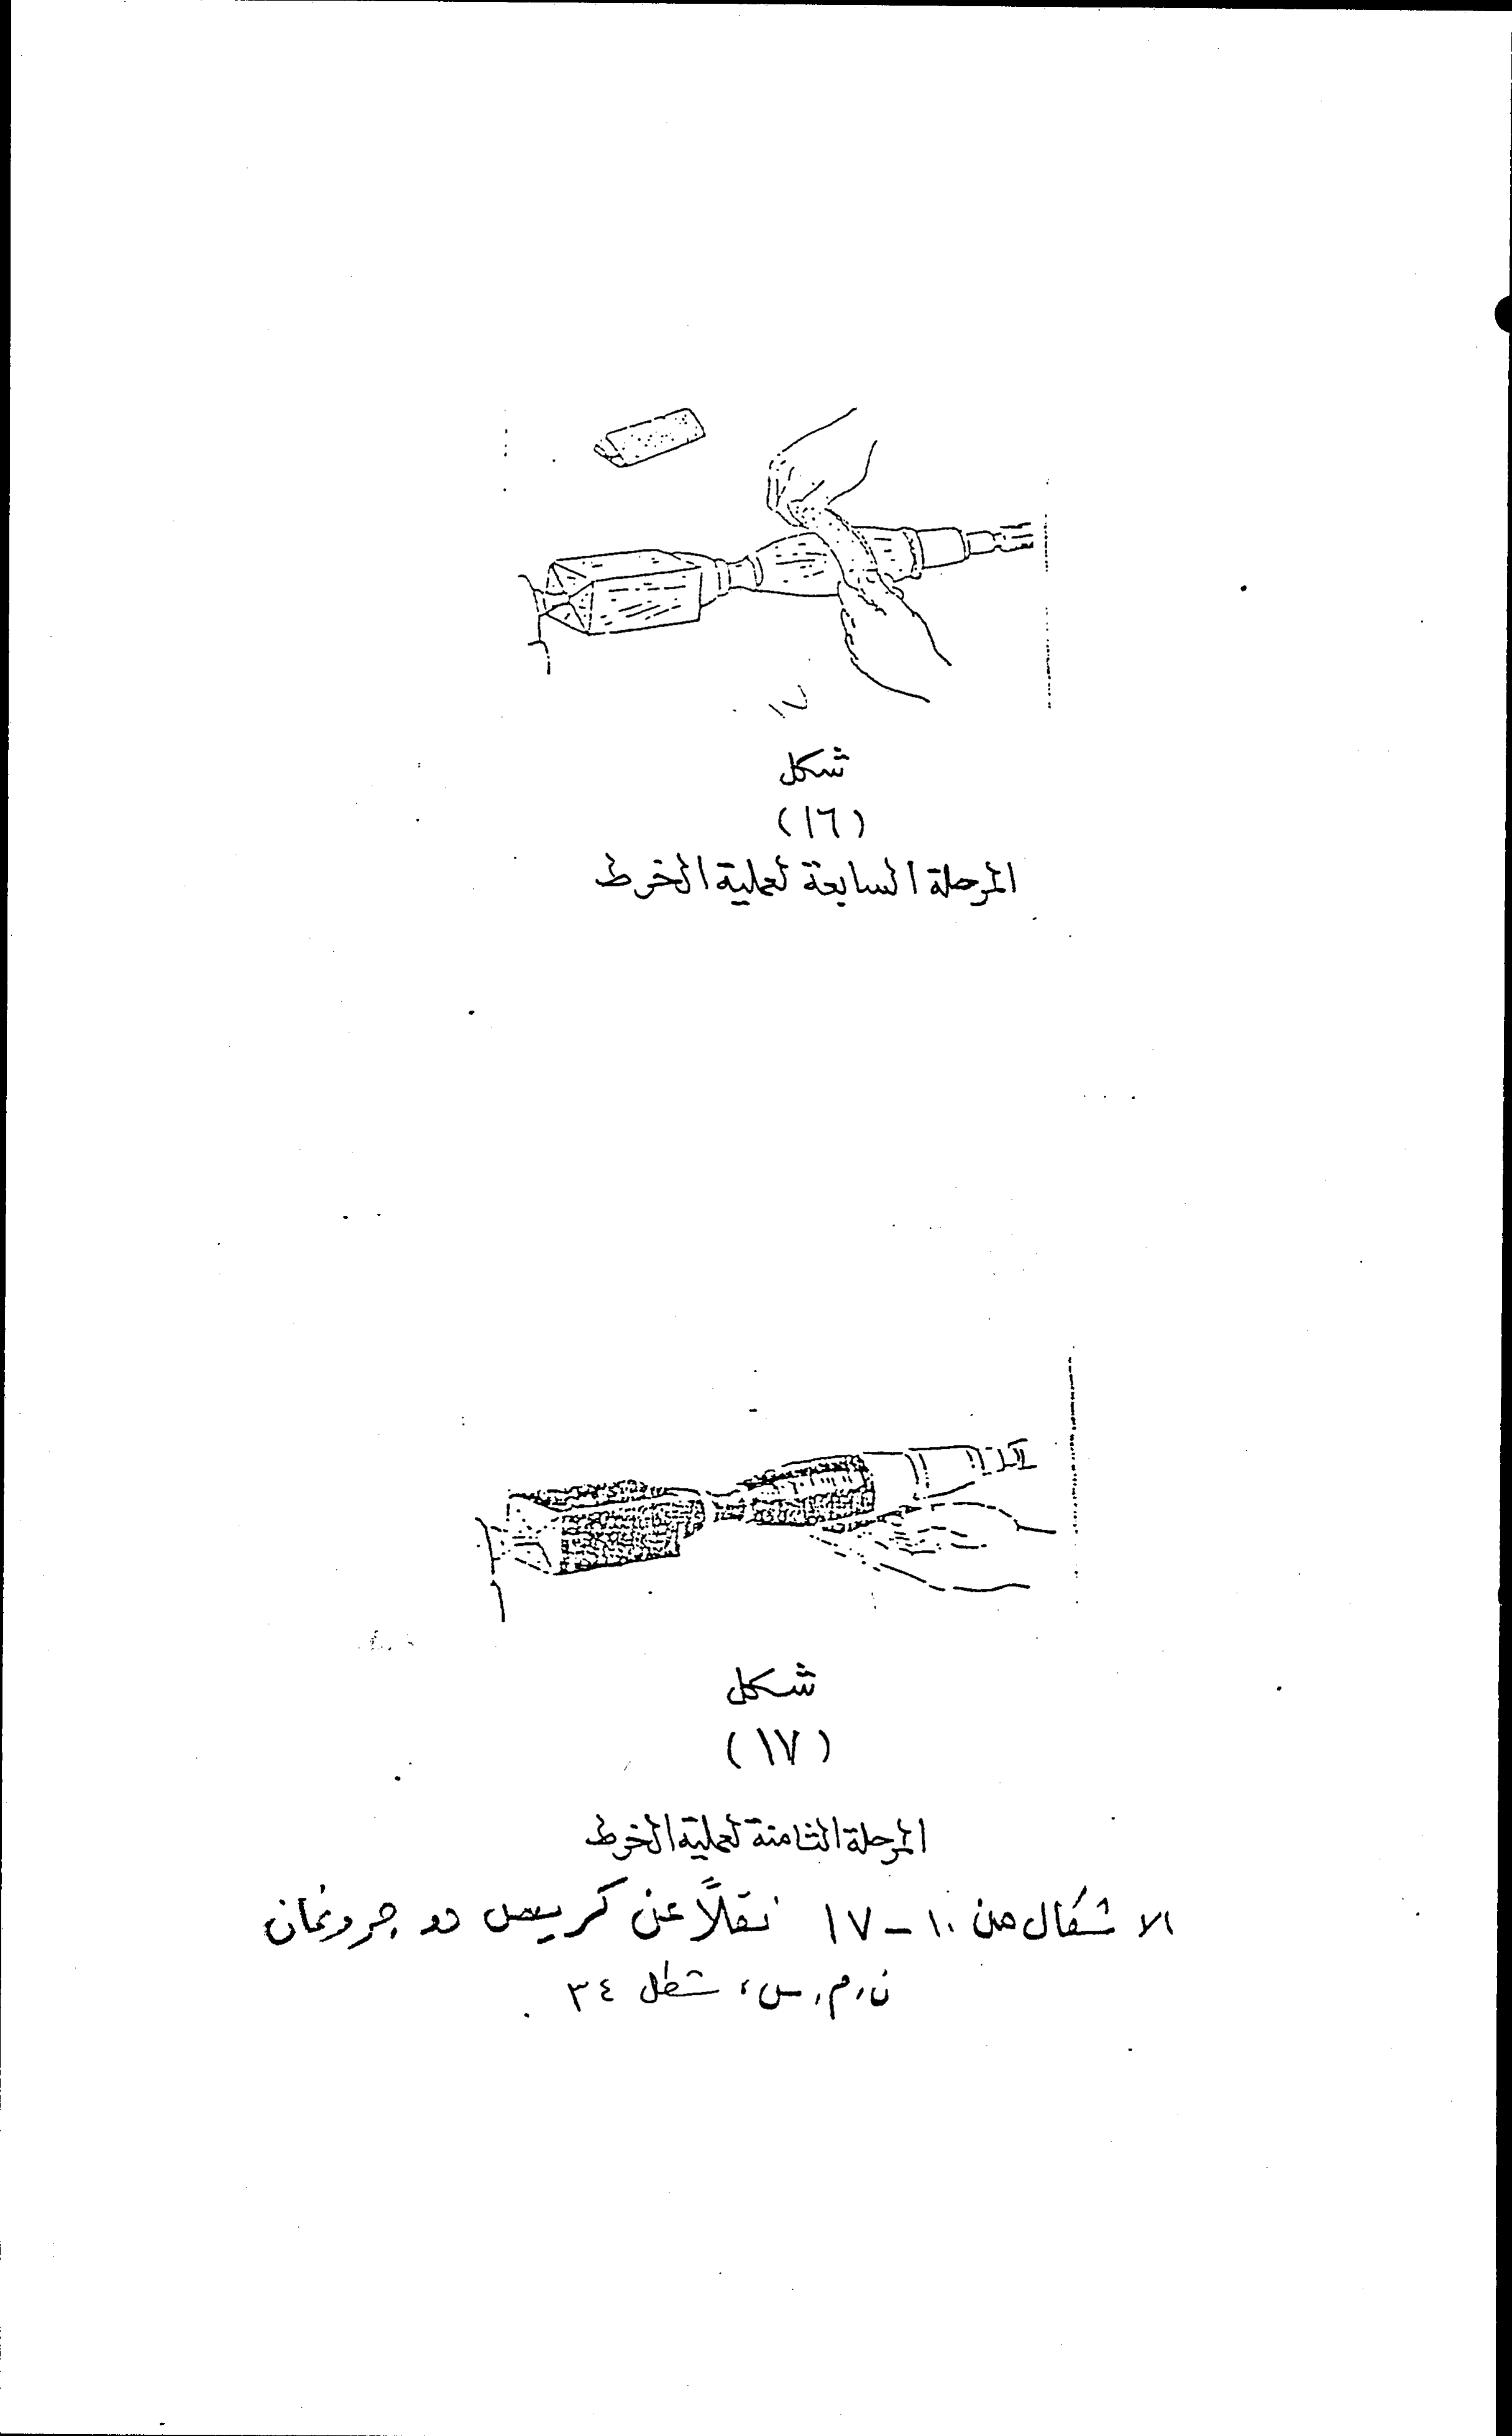 ١٧
شكل
(١٦)
المرحلة السابعة لعملية الخرط
شكل
(١٧)
المرحلة الثامنة لعملية الخرط
الاشكال من ١٠ - ١٧ نقلاً عن كريس دو جرونمان
ن.م.س، شكل ٣٤